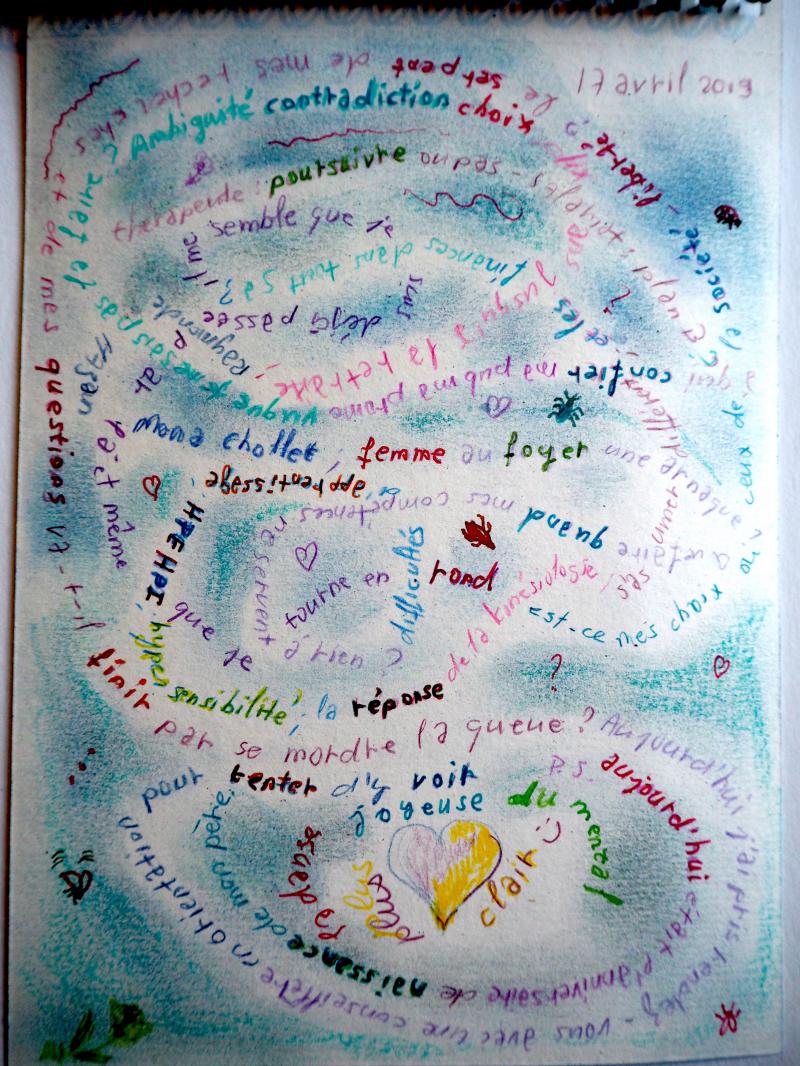 17 avril 2019
le serpent de mes recherches
et de mes questions va-t-il
finir par se mordre la queue ?
Aujourd'hui j'ai pris rendez-vous avec une conseillère en orientation
pour tenter d'y voir
plus clair
Est-ce mes choix ou ceux de
société - liberté ?
Ambiguité contradiction choix
jusqu'à la retraite
thérapeute : poursuivre ou pas -
à qui confier ma pub ma promo vu que je ne sais pas
et les finances dans tout ça ?
Il me semble que je suis déjà passée
là et même
que je tourne en rond
Mona Chollet, femme au foyer une
à refaire
quand mes compétences ne servent à rien ?
difficultés d'apprentissage,
HPE HPI, hypersensibilité, la réponse de la kinésiologie,
?
P.S. aujourd'hui était l'anniversaire de naissance de mon père,
joyeuse
la danse
du mental
plus